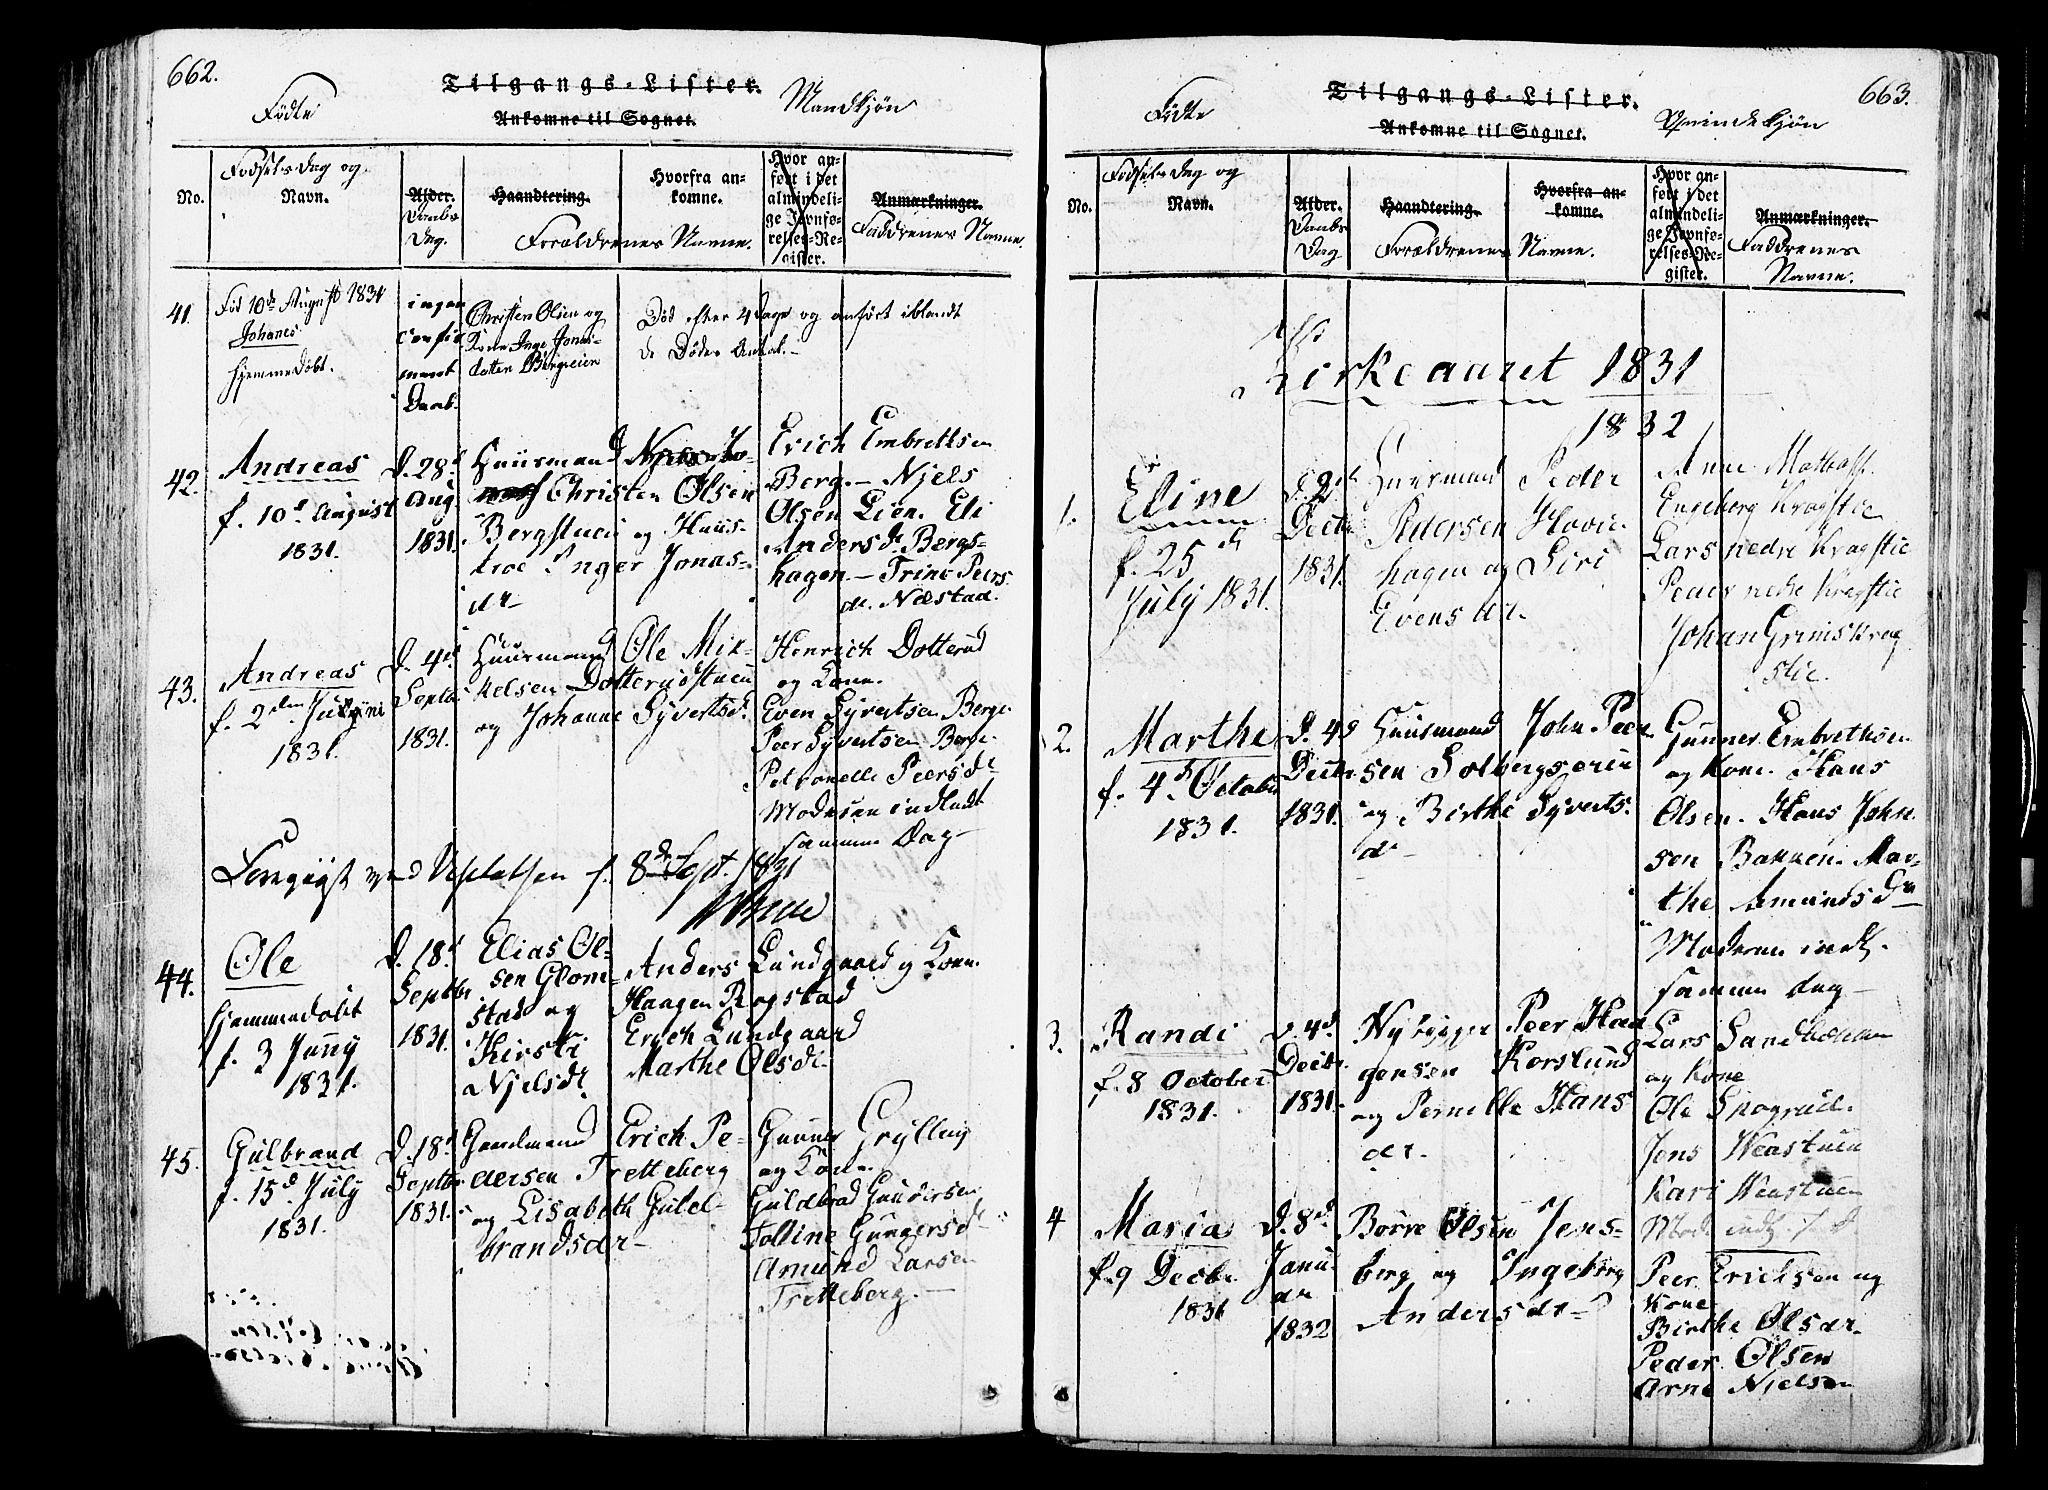 662.
Tilgangs-Lister.
Fødte
Ankomne til Sognet.
Mandkjøn
No.
Fødsels dag og
Navn.
Alder.
Daabs
Dag.
Haandtering.
Hvorfra an-
komne.
Forældrenes Navne.
Hvor an-
ført i det
almindeli-
ge Jevnfø-
relses-Re-
gister.
Anmærkninger.
Faddrenes Navne.
41.
Fød 10de August 1831
Johanes
hjemmedøbt.
ingen
Daab.
Christen Olsen og
Kone Inge Jonas-
datter
Død efter 4 Dage og anført iblandt
de Dødes Antal.-
42.
Andreas
f. 10d August
1831.
D. 28d
Aug
1831.
Huusmand
Christen Olsen
Bergstuen og Huus-
troe Inger Jonas-
dr-
Erich Embretsen
Berg.- Njels
Olsen Lien. Eli
Andersdr Bergs-
hagen.- Trine Peers
dr. Næstad.
43.
Andreas
f. 2den Juni
1831.
D. 4d
Septbr
1831.
Huusmand Ole Mik-
kelsen Dotterudstuen
og Johanne Syvertsdr.
Henrich Dotterud
og Kone.
Even Syvertsen Berge
Peer Syvertsen Berge
Petronelle Peersdr
Moderen indledt
samme Dag-
f. 8de Sept. 1831
44.
Ole
hjemmedøbt
f. 3 Juny
1831.
D. 18d
Septbr
1831.
Elias Ol-
sen Glom-
stad og
Kirsti
Njelsdr.
Anders Lundgaard og Kone.
Haagen Rogstad
Erich Lundgaard
Marthe Olsdr.
45.
Gulbrand
f. 15d July
1831.
D. 18d
Septbr
1831.
Gaardmand Erich Pe-
dersen Tretteberg
og Lisabeth Guld-
brandsdr-
Gunner Grylling
og Kone
Guldbrand Gundersen
Tolline Gungersdr
Amund Larsen
Tretteberg.-
663.
Tilgangs-Lister.
Fødte
Ankomne til Sognet.
Qvindekjøn
No.
Fødsels dag og
Navn.
Alder.
Daabs
Dag
Haandtering.
Hvorfra an-
komne.
Forældrenes Navne.
Hvor an-
ført i det
almindeli-
ge Jevnfø-
relses-Re-
gister.
Anmærkninger.
Faddrenes
Navne.
Kirkeaaret 1831
1832
1.
Eline
f. 25d
July 1831.
d. 2d
Decbr
1831.
Huusmand Peder
Pedersen Hovie-
hagen og Siri
Evensdr.
Anne
Engeborg Kragstie
Lars nedre Kragstie
Peder nedre Kragstie
Johan Grimskrag
stie.
2.
Marthe
f. 4d October
1831.
D. 4d
Decbr
1831.
Huusmand John Peer
sen Solbergseien
og Birthe Syverts.
dr-
Gunner Embrethsen
og Kone. Hans
Olsen. Hans John-
sen Bakken. Mar-
the Amundsdr
Moderen indl.
samme dag-
3.
Randi
f. 8 October
1831.
D. 4d
Decbr
1831.
Nybygger Peer Haa
gensen Korslund
og Pernille Hans
dr.
Lars Sandbakken
og Kone
Ole Skogrud.
Jens Neastuen
Kari Neastuen
4
Maria
f. 9 Decbr.
1831
D. 8d
Janu
ar
1832
Børre Olsen Jens-
berg og Ingeborg
Andersdr-
Peer Ericksen og
Kone
Birthe Olsdr.
Peder Olsen
Arne Nielsen